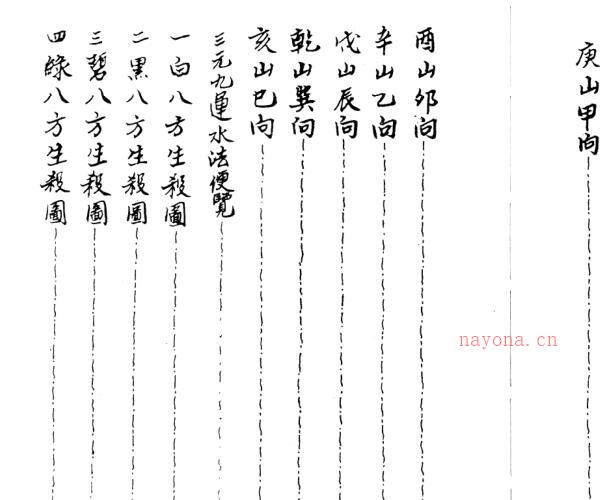 庚山甲向
酉山卯向
辛山乙向
戌山辰向
乾山巽向
亥山巳向
三元九運水法便覽
一白八方生殺圖
二黑八方生殺圖
三碧八方生殺圖
四綠八方生殺圖
nayona.cn